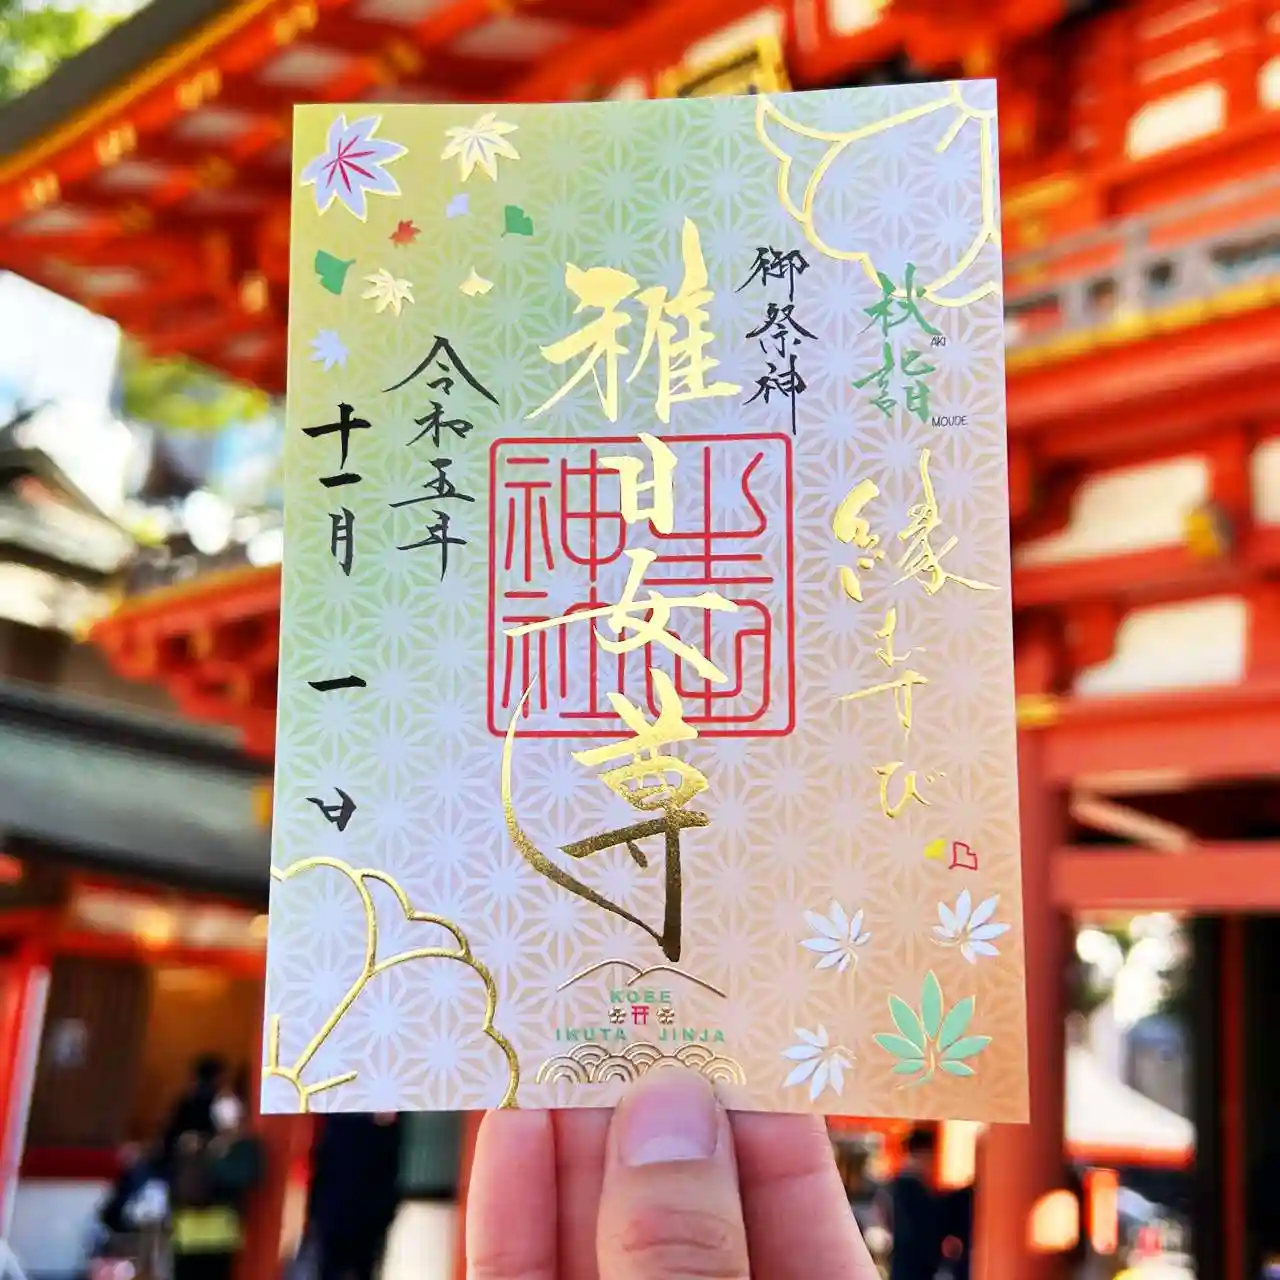 秋詣
AKI
MOUDE
縁むすび
御祭神
稚日女尊
生田神社
令和五年
十一月一日
KOBE
IKUTA JINJA